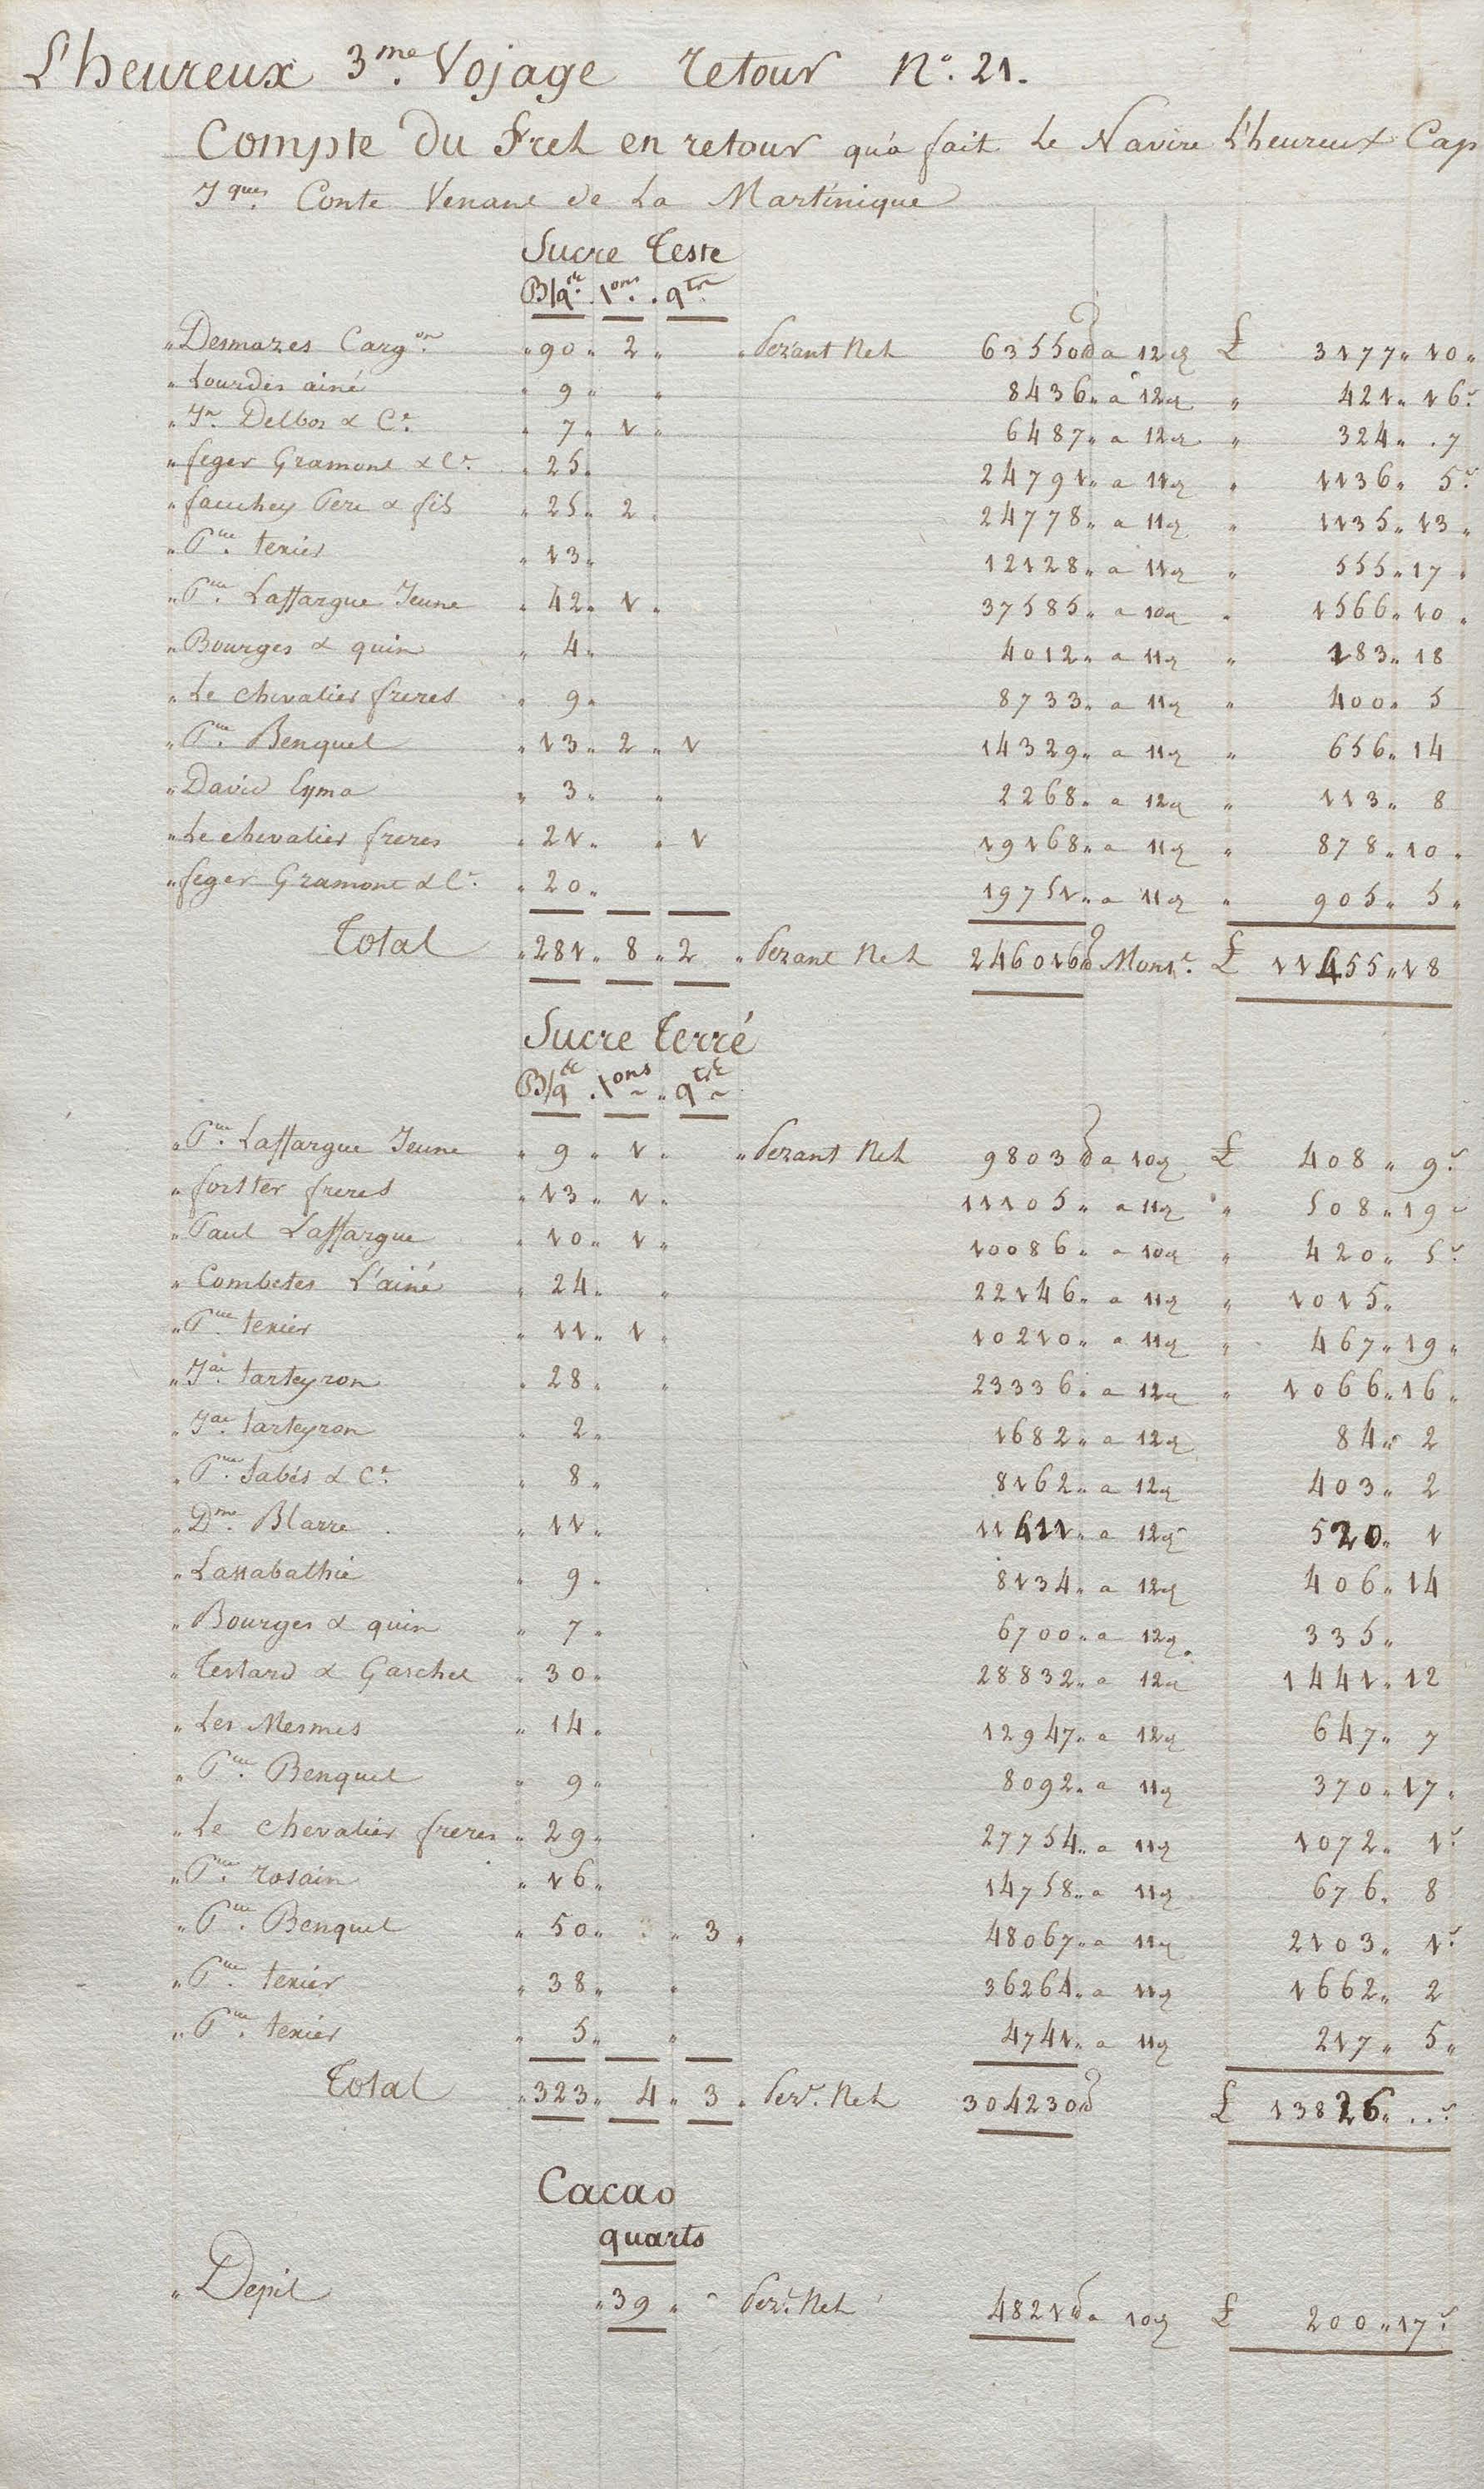 L'heureux 3me. Vojage retour No. 21.
Compte Du fret en retour qu'a fait Le Navire L'heureux Cap
Jques. Conte Venant de La Martinique
Sucre Teste
B/ques. tons. qrts.
" Desmazes Cargon. " 90 " 2 " " Pezant Net 63550 lb a 12 d £ 3177 " 10 "
" Lourdes ainé " 9 " " 8436 " a 12 d " 421 " 16 s.
" Jn. Delbos & Ce. " 7 " 1 " 6487 " a 12 d " 324 " . 7
" feger Gramont & Ce. " 25 " 24791 " a 11 d " 1136 " 5 s.
" fauchey Pere & fils " 25 " 2 " 24778 " a 11 d " 1135 " 13 "
" Pre. texier " 13 " 12128 " a 11 d " 555 " 17 "
" Pre. Laffargue Jeune " 42 " 1 " 37585 " a 10 d " 1566 " 10 "
" Bourges & quin " 4 " 4012 " a 11 d " 183 " 18
" Le chevalier freres " 9 " 8733 " a 11 d " 400 " 5
" Pre. Benquel " 13 " 2 " 1 14329 " a 11 d " 656 " 14
" David Eyma " 3 " " 2268 " a 12 d " 113 " 8
" Le chevalier freres " 21 " " 1 19168 " a 11 d " 878 " 10 "
" feger Gramont & Ce. " 20 " 19751 " a 11 d " 905 " 5 "
Total " 281 " 8 " 2 " Pezant Net 246016 lb Mont. £ 11455 " 18
Sucre Terré
B/qes. tons. qrts.
" Pre. Laffargue Jeune " 9 " 1 " " Pezant Net 9803 lb a 10 d £ 408 " 9 s.
" forster freres " 13 " 1 " 11105 " a 11 d " 508 " 19 s
" Paul Laffargue " 10 " 1 " 10086 " a 10 d " 420 " 5 s.
" Combetes L'ainé " 24 " " 22146 " a 11 d " 1015 "
" Pre. texier " 11 " 1 " 10210 " a 11 d " 467 " 19 "
" Jac. tarteyron " 28 " " 23336 " a 12 d " 1066 " 16 "
" Jac. tarteyron " 2 " 1682 " a 12 d 84 " 2
" Pre. Sabés & Ce. " 8 " 8162 " a 12 d 403 " 2
" Dme. Blarre . " 11 " 11611 " a 12 d 520 " 1
" Lassabathie " 9 " 8134 " a 12 d 406 " 14
" Bourges & quin " 7 " 6700 " a 12 d. 335 "
" Testard & Gaschet " 30 " 28832 " a 12 d 1441 " 12
" Les Mesmes " 14 " 12947 " a 12 d 647 " 7
" Pre. Benquel " 9 " 8092 " a 11 d 370 " 17 "
" Le chevalier freres " 29 " 27754 " a 11 d 1072 " 1 s.
" Pre. rosain " 16 " 14758 " a 11 d 676 " 8
" Pre. Benquel " 50 " " 3 " 48067 " a 11 d 2103 " 1 s.
" Pre. texier " 38 " " 36264 " a 11 d 1662 " 2
" Pre. texier " 5 " " 4741 " a 11 d 217 " 5 "
Total " 323 " 4 " 3 " Pezt. Net 304230 lb £ 13826 " .. s.
Cacao
quarts
" Depit " 39 " " Pezt. Net 4821 lb a 10 d £ 200 " 17 s.